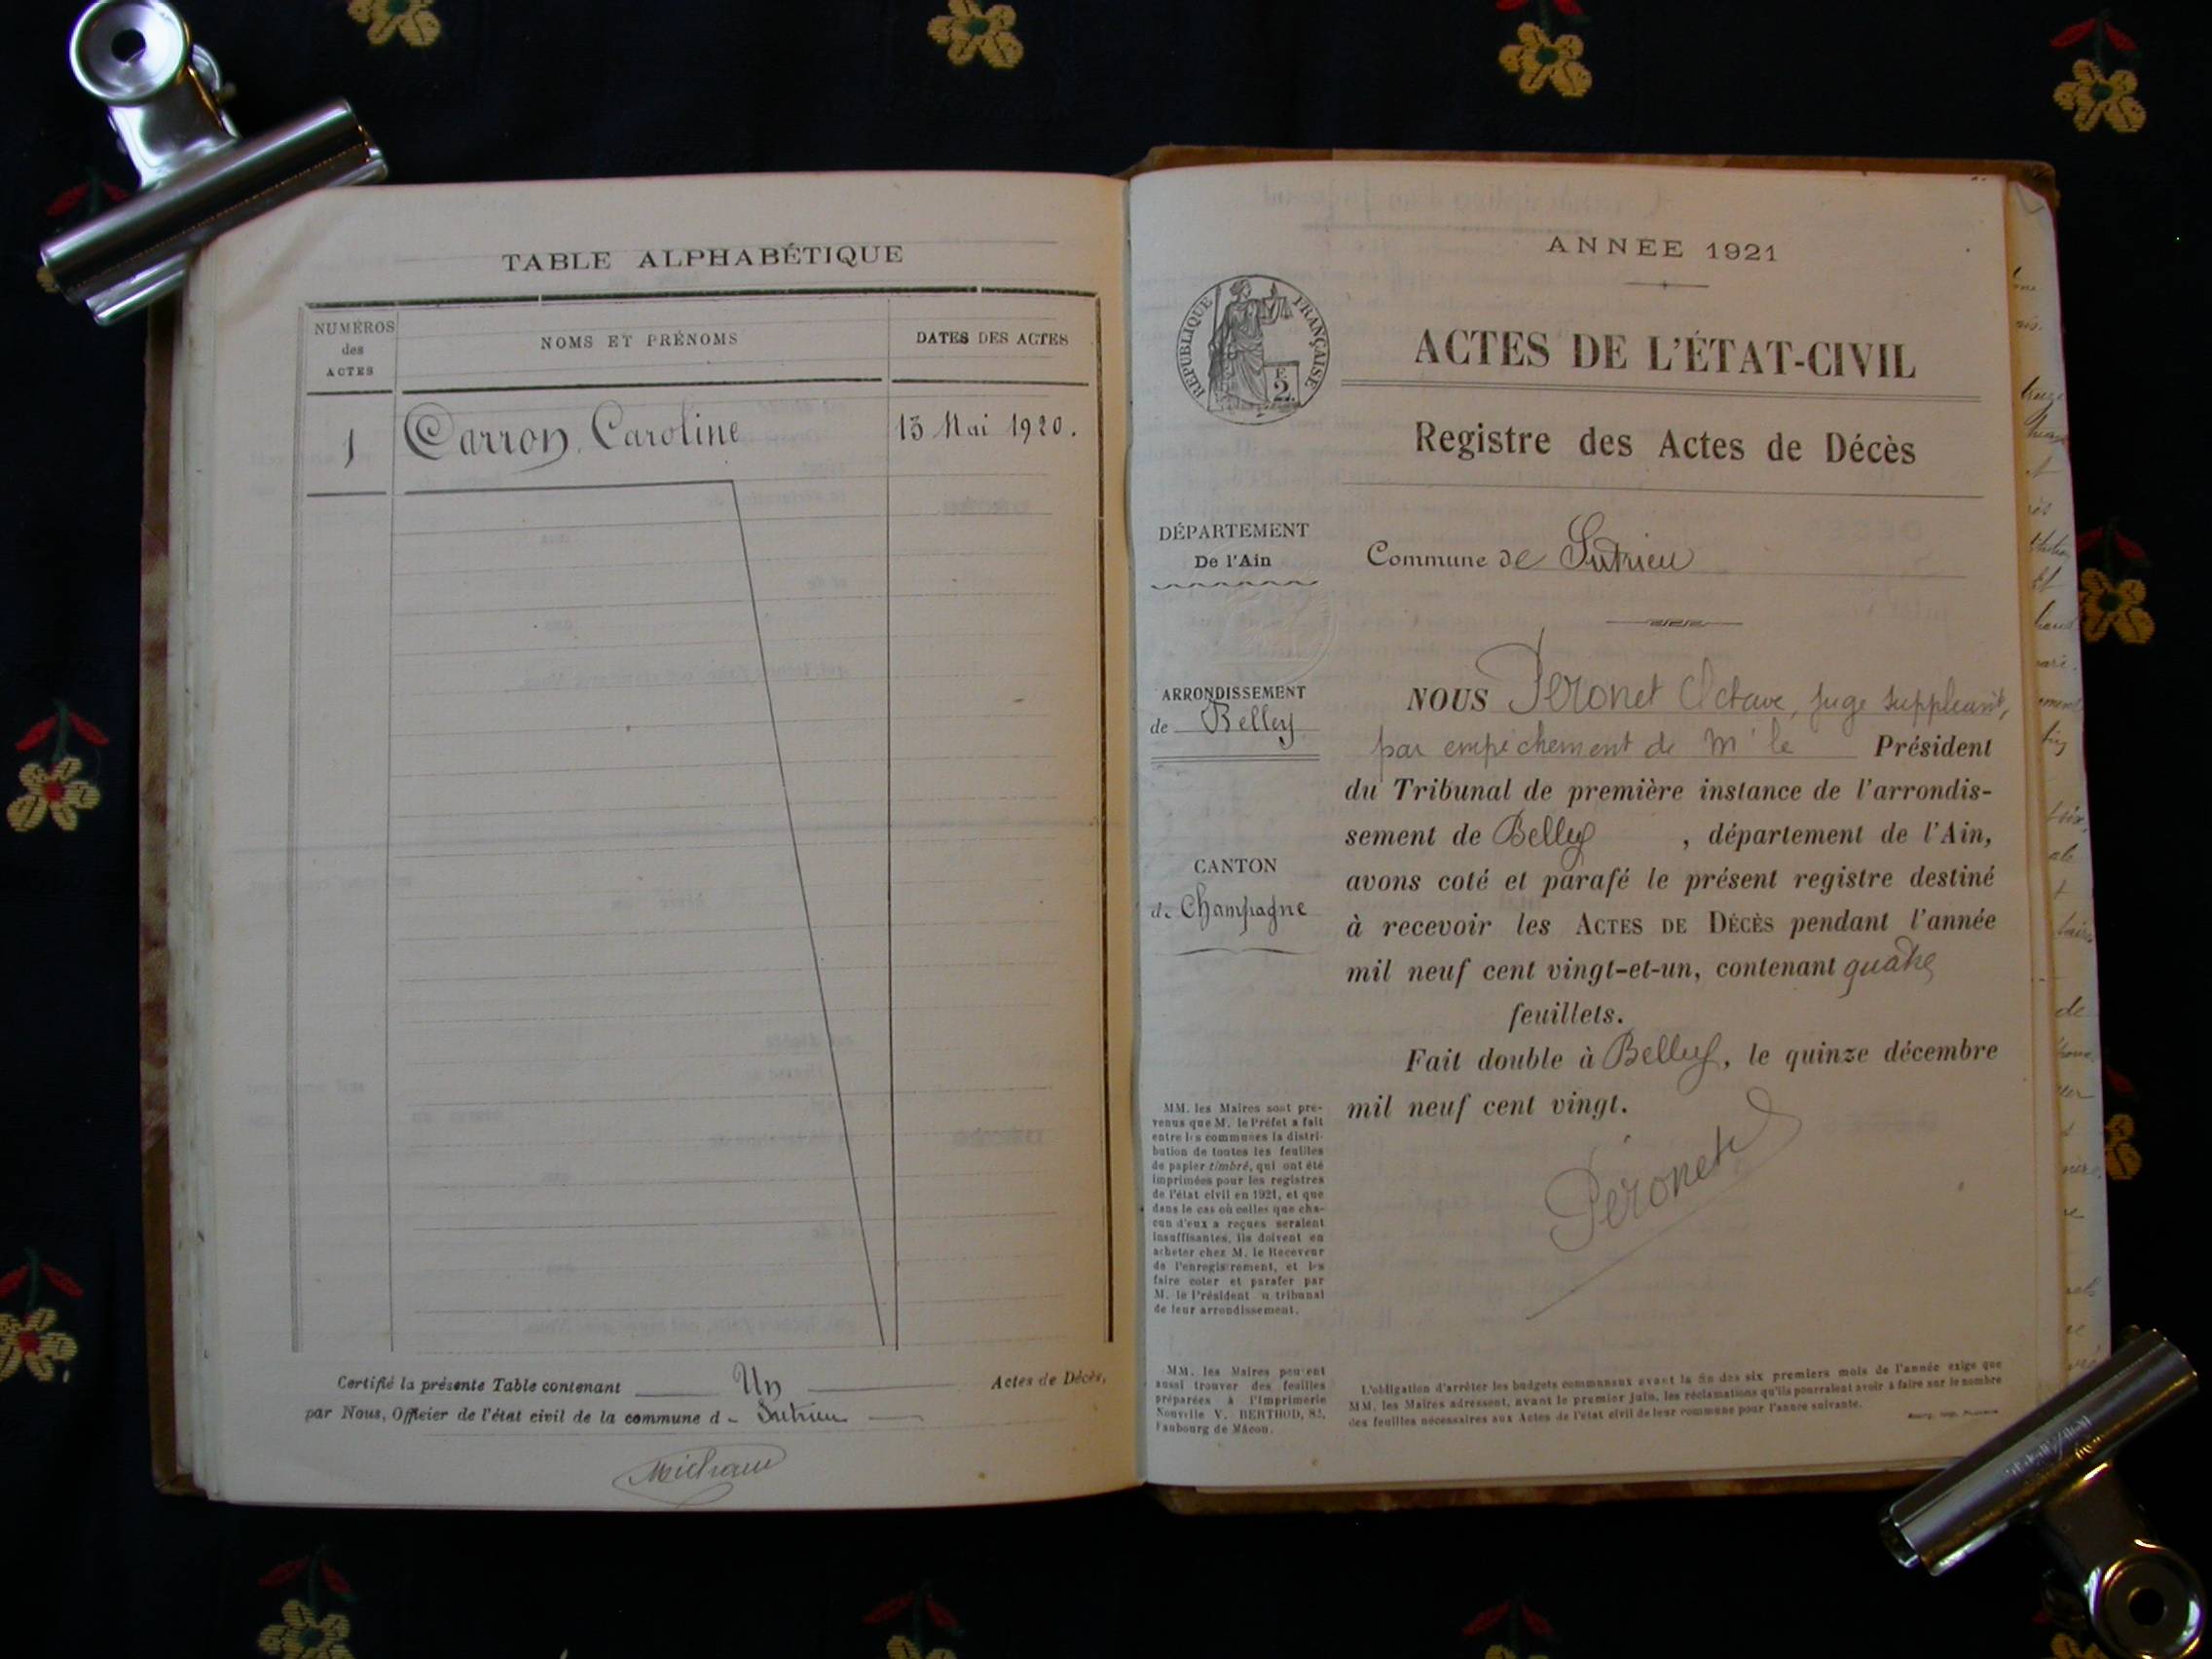 TABLE ALPHABÉTIQUE
NUMÉROS
des
ACTES
NOMS ET PRÉNOMS
DATES DES ACTES
1
Carron Caroline
13 Mai 1920.
Certifié la présente Table contenant Un Actes de Décès,
par Nous, Officier de l'état civil de la commune d Sutrieu
Michaud
ANNÉE 1921
RÉPUBLIQUE FRANÇAISE
2
ACTES DE L'ÉTAT-CIVIL
Registre des Actes de Décès
DÉPARTEMENT
De l'Ain
Commune de Sutrieu
ARRONDISSEMENT
de Belley
CANTON
de Champagne
NOUS Péronet Octave, juge suppléant,
par empêchement de Mr le Président
du Tribunal de première instance de l'arrondis-
sement de Belley, département de l'Ain,
avons coté et parafé le présent registre destiné
à recevoir les ACTES DE DÉCÈS pendant l'année
mil neuf cent vingt-et-un, contenant quatre
feuillets.
Fait double à Belley, le quinze décembre
mil neuf cent vingt.
Péronet
MM. les Maires sont pré-
venus que M. le Préfet a fait
entre les communes la distri-
bution de toutes les feuilles
de papier timbré, qui ont été
imprimées pour les registres
de l'état civil en 1921, et que
dans le cas où celles que cha-
cun d'eux a reçues seraient
insuffisantes, ils doivent en
acheter chez M. le Receveur
de l'enregistrement, et les
faire coter et parafer par
M. le Président u tribunal
de leur arrondissement.
MM. les Maires peuvent
aussi trouver des feuilles
préparées à l'Imprimerie
Nouvelle V. BERTHOD, 82,
Faubourg de Mâcon.
L'obligation d'arrêter les budgets communaux avant la fin des six premiers mois de l'année exige que
MM. les Maires adressent, avant le premier juin, les réclamations qu'ils pourraient avoir à faire sur le nombre
des feuilles nécessaires aux Actes de l'état civil de leur commune pour l'année suivante.